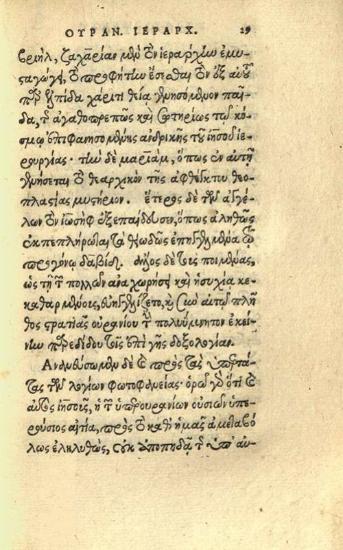 ΟΥΡΑΝ. ΙΕΡΑΡΧ. 29
βριὴλ, ζαχαρίαν μὲν τὸν ἱεράρχην ἐμυ-
σταγώγει, προφήτην ἔσεσθαι τὸν ἐξ αὐτοῦ
παρ' ἐλπίδα χάριτι θείᾳ γενησόμενον παῖ-
δα, τῆς ἀγαθοπρεπῶς καὶ σωτηρίως τῷ κό-
σμῳ ἐπιφανησομένης ἀνδρικῆς τοῦ ἰησοῦ θε-
ουργίας· τὴν δὲ μαριὰμ, ὅπως ἐν αὐτῇ
γενήσεται τὸ θεαρχικὸν τῆς ἀφθέγκτου θεο-
πλαστίας μυστήριον. ἕτερος δὲ τῶν ἀγγέ-
λων τὸν ἰωσὴφ ἐξεπαίδευσεν, ὅπως ἀληθῶς
ἐκπεπλήρωται τὰ θειωδῶς ἐπηγγελμένα τῷ
προγόνῳ δαβίδ. ἄλλος δὲ τοῖς ποιμέσιν,
ὡς τῇ τῶν πολλῶν ἀναχωρήσει καὶ ἡσυχίᾳ κε-
καθαρμένοις, εὐηγγελίζετο, καὶ σὺν αὐτῷ πλῆ-
θος στρατιᾶς οὐρανίου τὴν πολυύμνητον ἐκεί-
νην παρεδίδου τοῖς ἐπὶ γῆς δοξολογίαν.
Ἀναδύσωμεν δὲ καὶ πρὸς τὰς ὑπερτά-
τας τῶν λογίων φωτοφανείας· ὁρῶ γὰρ ὅτι καὶ
αὐτὸς ἰησοῦς, ἡ τῶν ὑπερουρανίων οὐσιῶν ὑπε-
ρούσιος αἰτία, πρὸς τὸ καθ' ἡμᾶς ἀμεταβό-
λως ἐληλυθὼς, οὐκ ἀποπηδᾷ τῆς ὑπ' αὐ-